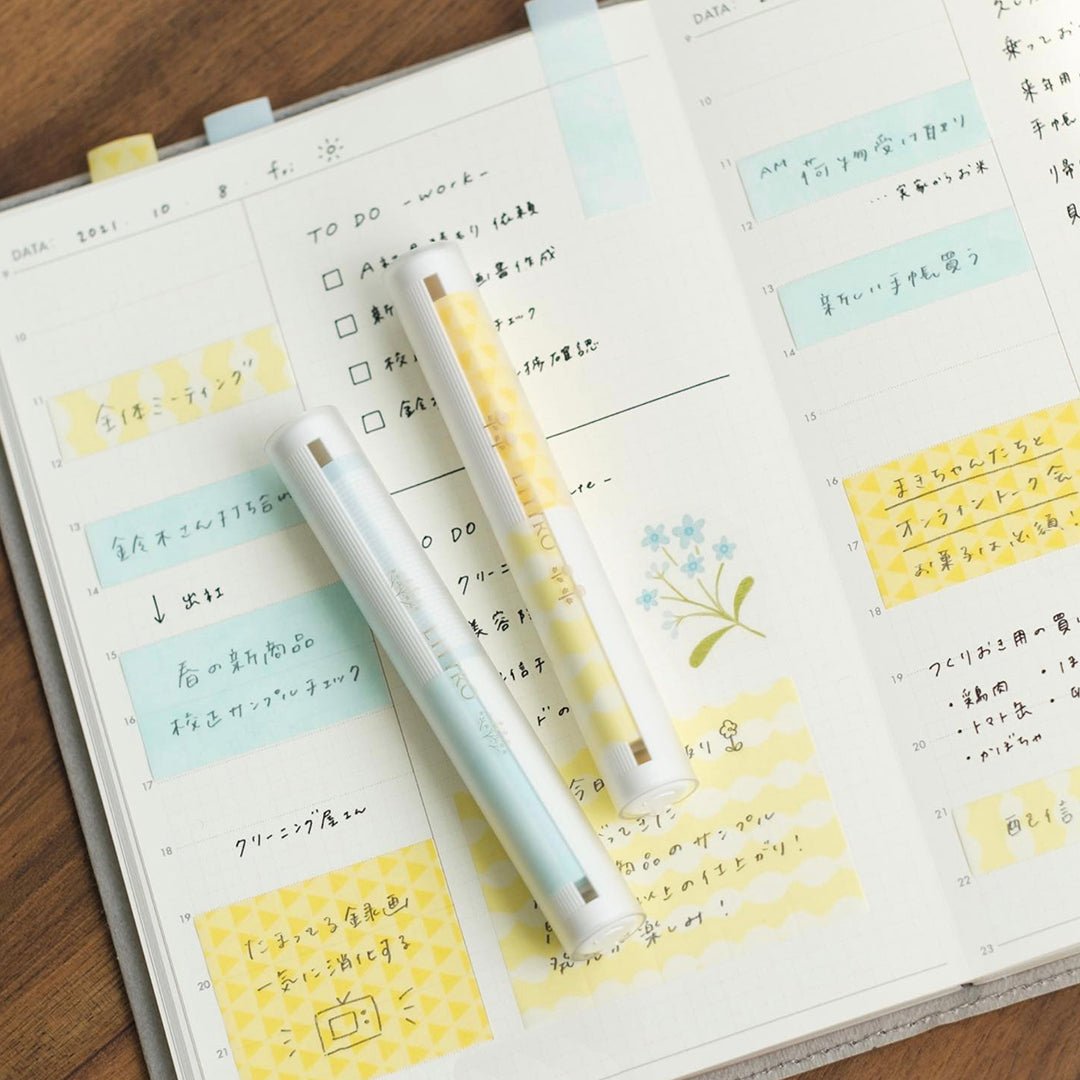 DATA: 2021. 10. 8. fri
9
10
11
全体ミーティング
12
13
鈴木さん打ち合わ
14
↓ 出社
15
春の新商品
16
校正サンプルチェック
17
18
クリーニング屋さん
19
たまってる録画
20
一気に消化する
21
TO DO -work-
□ A社 見積もり依頼
□ 新 画書作成
□ 校 チェック
□ 鈴 捗確認
te-
O DO
クリーニ
美容院
信チ
ドの
り
今日
ってきた
商品のサンプル
以上の仕上がり!
が楽しみ!
LITTRO
LITTRO
DATA:
9
10
11
AM 荷物受け取り
12
…実家からお米
13
新しい手帳買う
14
15
16
まきちゃんたちと
オンライントーク会
17
お菓子は必須!
18
つくりおき用の買い
19
・鶏肉
・トマト缶
20
・かぼちゃ
21
配信
22
23
乗ってお
来年用
手帳
帰